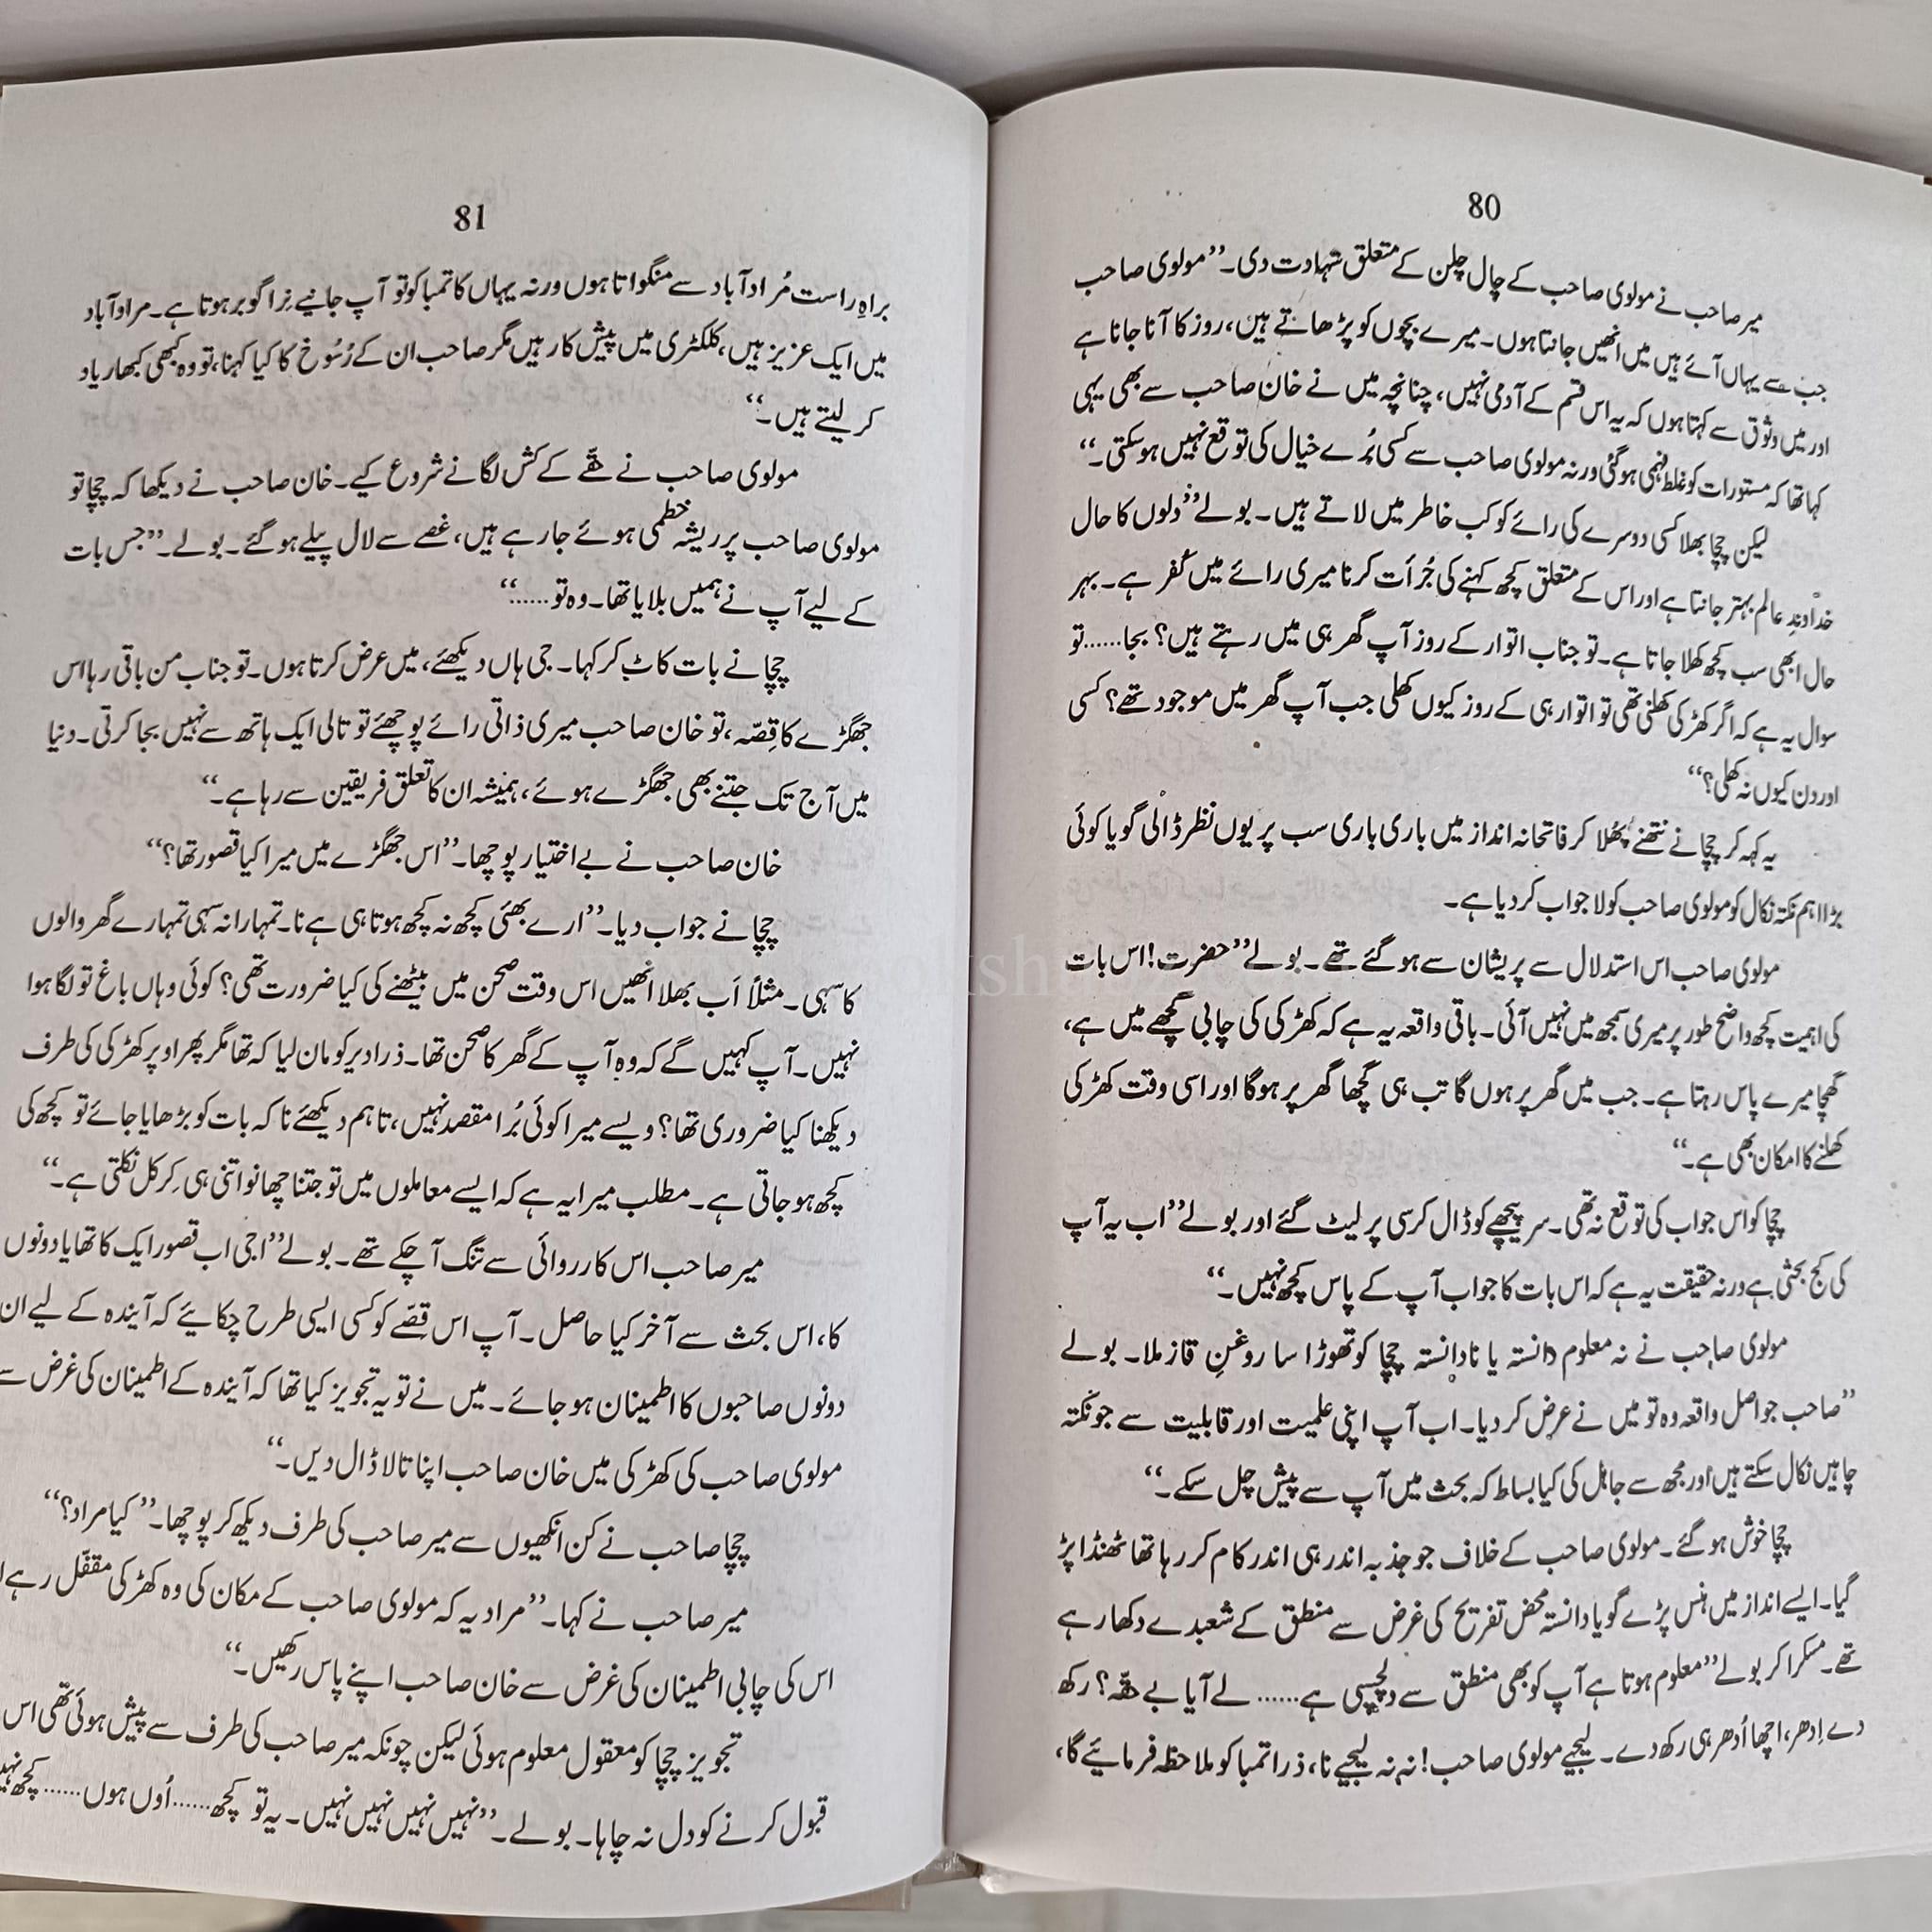 80
میر صاحب نے مولوی صاحب کے چال چلن کے متعلق شہادت دی۔ ”مولوی صاحب
جب سے یہاں آئے ہیں میں انھیں جانتا ہوں۔ میرے بچوں کو پڑھاتے ہیں، روز کا آنا جانا ہے
اور میں وثوق سے کہتا ہوں کہ یہ اس قسم کے آدمی نہیں، چنانچہ میں نے خان صاحب سے بھی یہی
کہا تھا کہ مستورات کو غلط فہمی ہو گئی ورنہ مولوی صاحب سے کسی بُرے خیال کی توقع نہیں ہو سکتی۔“
لیکن چچا بھلا کسی دوسرے کی رائے کو کب خاطر میں لاتے ہیں۔ بولے ”دلوں کا حال
خداوندِ عالم بہتر جانتا ہے اور اس کے متعلق کچھ کہنے کی جُرأت کرنا میری رائے میں کُفر ہے۔ بہر
حال ابھی سب کچھ کھلا جاتا ہے۔ تو جناب اتوار کے روز آپ گھر ہی میں رہتے ہیں؟ بجا...... تو
سوال یہ ہے کہ اگر کھڑکی کھلنی تھی تو اتوار ہی کے روز کیوں کھلی جب آپ گھر میں موجود تھے؟ کسی
اور دن کیوں نہ کھلی؟“
یہ کہہ کر چچا نے نتھنے پُھلا کر فاتحانہ انداز میں باری باری سب پر یوں نظر ڈالی گویا کوئی
بڑا اہم نکتہ نکال کو مولوی صاحب کو لا جواب کر دیا ہے۔
مولوی صاحب اس استدلال سے پریشان سے ہو گئے تھے۔ بولے ”حضرت! اس بات
کی اہمیت کچھ واضح طور پر میری سمجھ میں نہیں آئی۔ باقی واقعہ یہ ہے کہ کھڑکی کی چابی گچھے میں ہے،
گچھا میرے پاس رہتا ہے۔ جب میں گھر پر ہوں گا تب ہی گچھا گھر پر ہوگا اور اسی وقت کھڑکی
کھلنے کا امکان بھی ہے۔“
چچا کو اس جواب کی توقع نہ تھی۔ سر پیچھے کو ڈال کرسی پر لیٹ گئے اور بولے ”اب یہ آپ
کی کج بحثی ہے ورنہ حقیقت یہ ہے کہ اس بات کا جواب آپ کے پاس کچھ نہیں۔“
مولوی صاحب نے نہ معلوم دانستہ یا نادانستہ چچا کو تھوڑا سا روغنِ قاز ملا۔ بولے
”صاحب جو اصل واقعہ وہ تو میں نے عرض کر دیا۔ اب آپ اپنی علمیت اور قابلیت سے جو نکتہ
چاہیں نکال سکتے ہیں اور مجھ سے جاہل کی کیا بساط کہ بحث میں آپ سے پیش چل سکے۔“
چچا خوش ہو گئے۔ مولوی صاحب کے خلاف جو جذبہ اندر ہی اندر کام کر رہا تھا ٹھنڈا پڑ
گیا۔ ایسے انداز میں ہنس پڑے گویا دانستہ محض تفریح کی غرض سے منطق کے شعبدے دکھا رہے
تھے۔ مسکرا کر بولے ”معلوم ہوتا ہے آپ کو بھی منطق سے دلچسپی ہے...... لے آیا بے حقّہ؟ رکھ
دے اِدھر، اچھا اُدھر ہی رکھ دے۔ لیجیے مولوی صاحب! نہ نہ لیجیے نا، ذرا تمبا کو ملاحظہ فرمائیے گا،
81
براہِ راست مُراد آباد سے منگواتا ہوں ورنہ یہاں کا تمبا کو تو آپ جانیے نِرا گوبر ہوتا ہے۔ مراد آباد
میں ایک عزیز ہیں، کلکٹری میں پیش کار ہیں مگر صاحب ان کے رُسُوخ کا کیا کہنا، تو وہ کبھی کبھار یاد
کر لیتے ہیں۔“
مولوی صاحب نے حقّے کے کش لگانے شروع کیے۔ خان صاحب نے دیکھا کہ چچا تو
مولوی صاحب پر ریشہ خطمی ہوئے جا رہے ہیں، غصے سے لال پیلے ہو گئے۔ بولے۔ ”جس بات
کے لیے آپ نے ہمیں بلایا تھا۔ وہ تو......“
چچا نے بات کاٹ کر کہا۔ جی ہاں دیکھئے، میں عرض کرتا ہوں۔ تو جناب من باقی رہا اس
جھگڑے کا قِصّہ، تو خان صاحب میری ذاتی رائے پوچھئے تو تالی ایک ہاتھ سے نہیں بجا کرتی۔ دنیا
میں آج تک جتنے بھی جھگڑے ہوئے، ہمیشہ ان کا تعلق فریقین سے رہا ہے۔“
خان صاحب نے بے اختیار پوچھا۔ ”اس جھگڑے میں میرا کیا قصور تھا؟“
چچا نے جواب دیا۔ ”ارے بھئی کچھ نہ کچھ ہوتا ہی ہے نا۔ تمہارا نہ سہی تمہارے گھر والوں
کا سہی۔ مثلاً اَب بھلا انھیں اس وقت صحن میں بیٹھنے کی کیا ضرورت تھی؟ کوئی وہاں باغ تو لگا ہوا
نہیں۔ آپ کہیں گے کہ وہ آپ کے گھر کا صحن تھا۔ ذرا دیر کو مان لیا کہ تھا مگر پھر اوپر کھڑکی کی طرف
دیکھنا کیا ضروری تھا؟ ویسے میرا کوئی بُرا مقصد نہیں، تاہم دیکھئے نا کہ بات کو بڑھایا جائے تو کچھ کی
کچھ ہو جاتی ہے۔ مطلب میرا یہ ہے کہ ایسے معاملوں میں تو جتنا چھانو اتنی ہی کِرکل نکلتی ہے۔“
میر صاحب اس کارروائی سے تنگ آ چکے تھے۔ بولے ”اجی اب قصور ایک کا تھا یا دونوں
کا، اس بحث سے آخر کیا حاصل۔ آپ اس قصّے کو کسی ایسی طرح چکائیے کہ آیندہ کے لیے ان
دونوں صاحبوں کا اطمینان ہو جائے۔ میں نے تو یہ تجویز کیا تھا کہ آیندہ کے اطمینان کی غرض سے
مولوی صاحب کی کھڑکی میں خان صاحب اپنا تالا ڈال دیں۔“
چچا صاحب نے کن انکھیوں سے میر صاحب کی طرف دیکھ کر پوچھا۔ ”کیا مراد؟“
میر صاحب نے کہا۔ ”مراد یہ کہ مولوی صاحب کے مکان کی وہ کھڑکی مقفّل رہے
اس کی چابی اطمینان کی غرض سے خان صاحب اپنے پاس رکھیں۔“
تجویز چچا کو معقول معلوم ہوئی لیکن چونکہ میر صاحب کی طرف سے پیش ہوئی تھی اس
قبول کرنے کو دل نہ چاہا۔ بولے۔ ”نہیں نہیں نہیں نہیں۔ یہ تو کچھ...... اُوں ہوں...... کچھ